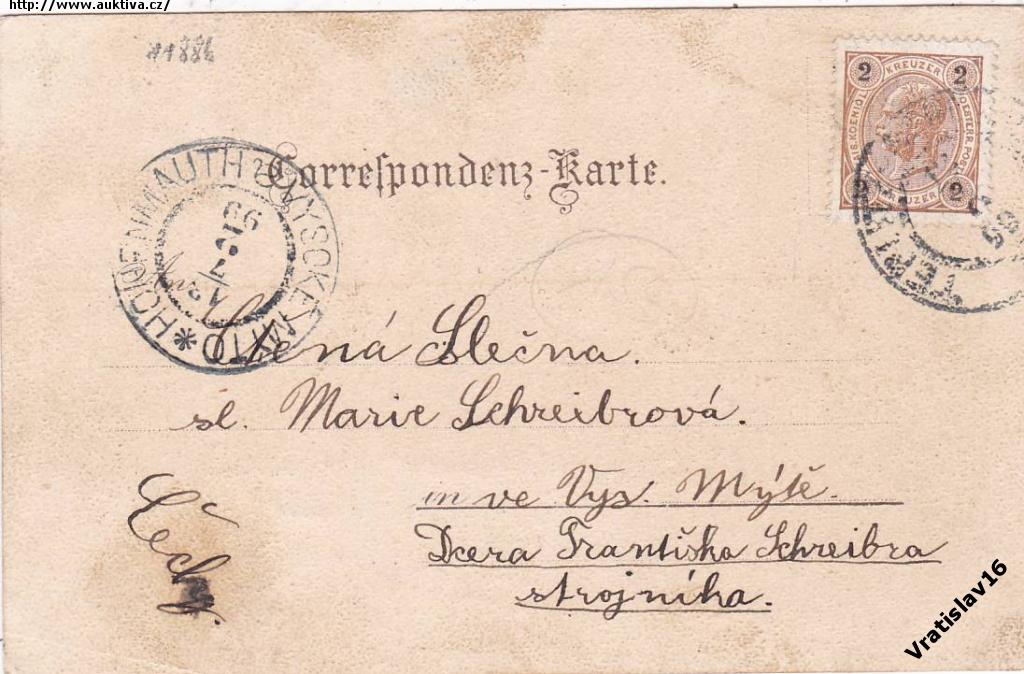 http://www.auktiva.cz/
2 KREUZER 2
Correspondenz-Karte.
HOHENMAUTH VYSOKÉ MÝTO
Ctěná Slečna.
sl. Marie Schreibrová.
ve Vys. Mýtě.
Čechy.
Dcera Františka Schreibra
strojníka.
2 KREUZER 2
Vratislav16